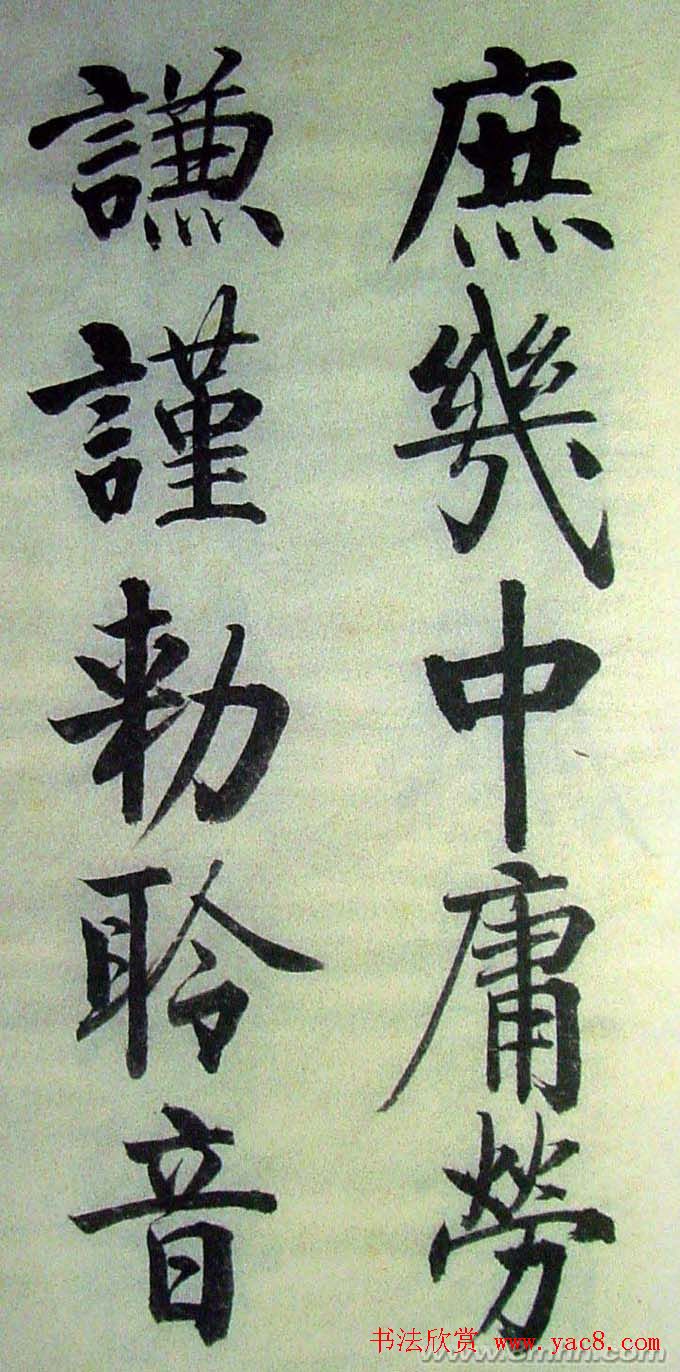 庶幾中庸勞
謙謹勅聆音
书法欣赏 www.yac8.com